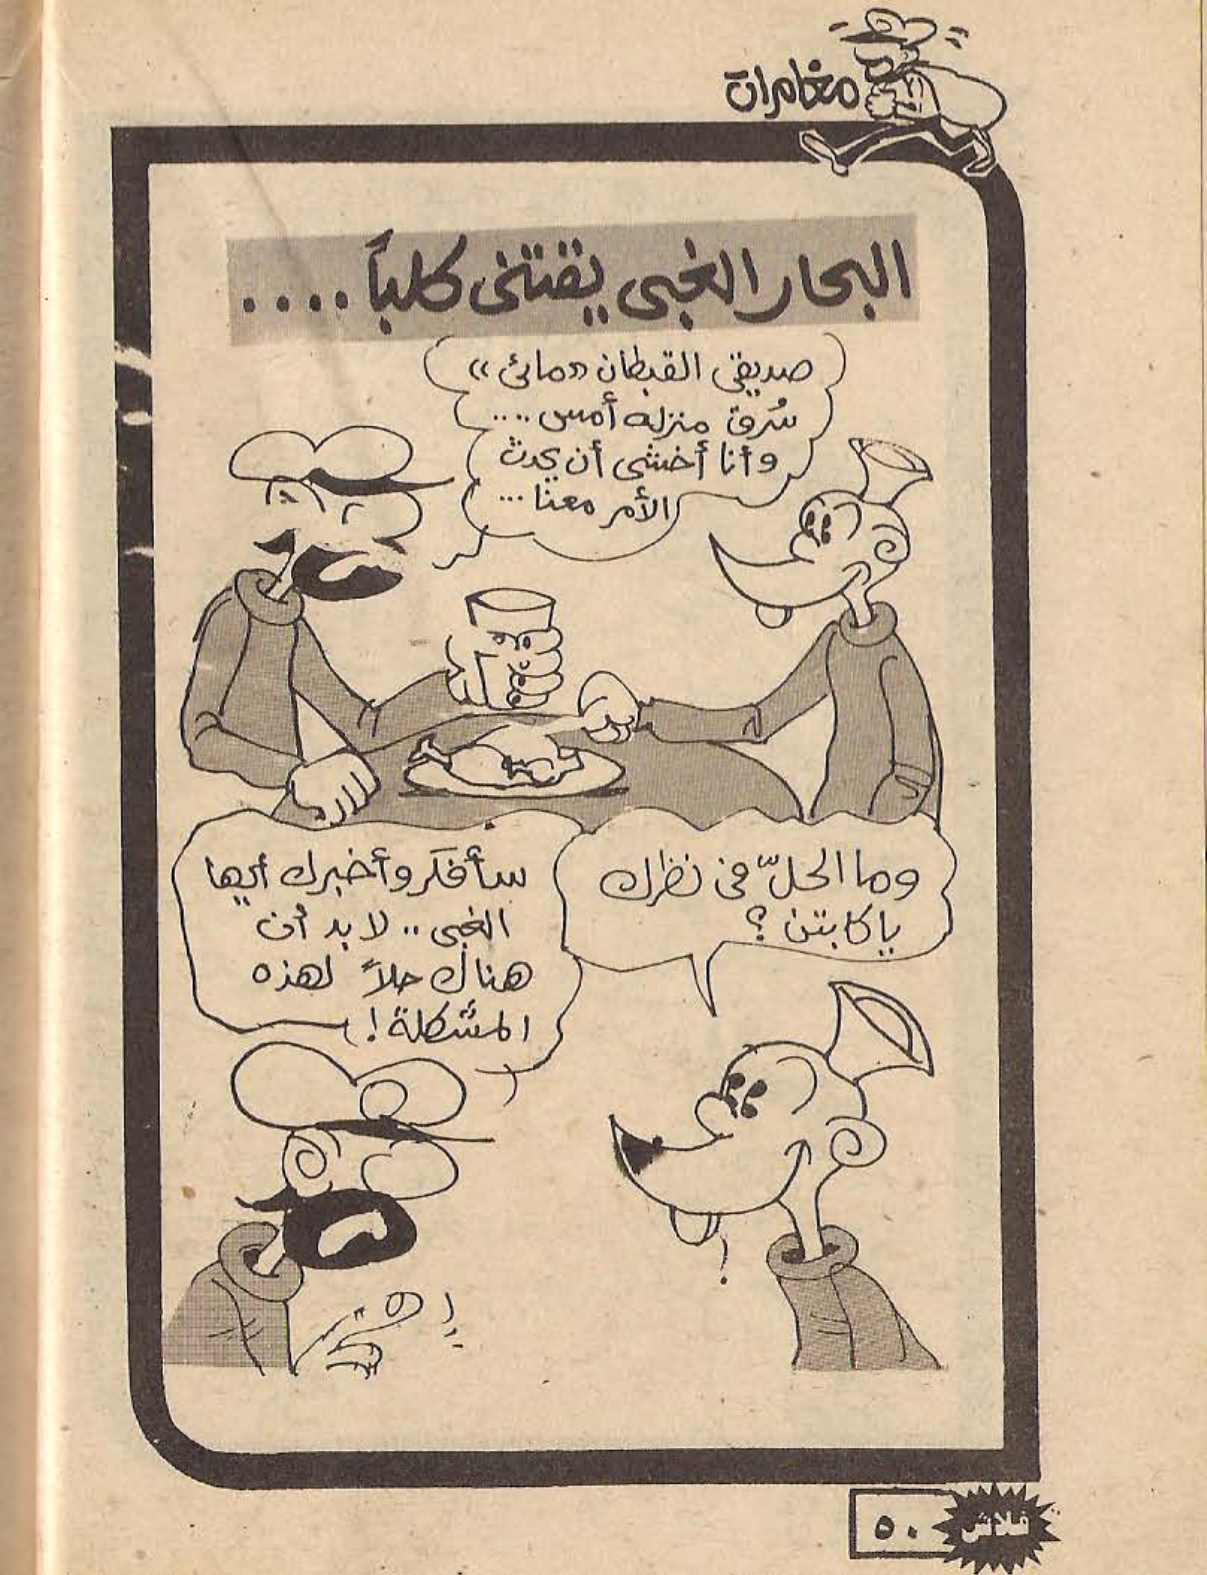 مغامرات
البحار الغبى يقتنى كلباً ....
صديقى القبطان «مائى»
سُرق منزله أمس ....
وأنا أخشى أن يحدث
الأمر معنا ...
وما الحلّ فى نظرك
يا كابتن ؟
سأفكر وأخبرك أيها
الغبى .. لا بد أن
هناك حلاً لهذه
المشكلة !
فلاش
٥٠